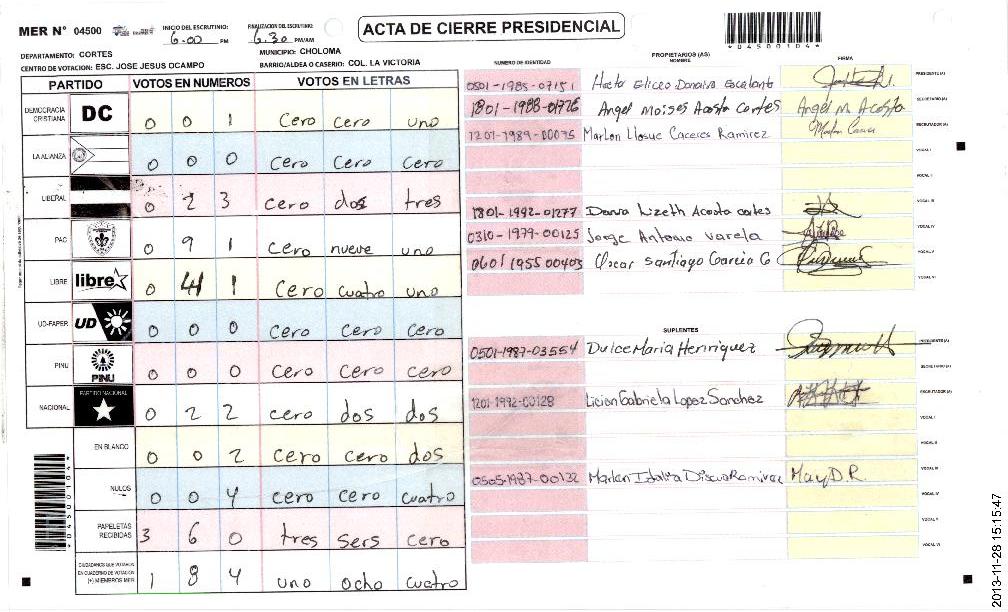 MER Nº 04500
INICIO DEL ESCRUTINIO: 6:00 PM
FINALIZACION DEL ESCRUTINIO: 6:30 PM/AM
ACTA DE CIERRE PRESIDENCIAL
*04500104*
DEPARTAMENTO: CORTES
MUNICIPIO: CHOLOMA
CENTRO DE VOTACION: ESC. JOSE JESUS OCAMPO
BARRIO/ALDEA O CASERIO: COL. LA VICTORIA
PARTIDO VOTOS EN NUMEROS VOTOS EN LETRAS
DEMOCRACIA CRISTIANA DC 0 0 1 Cero cero uno
LA ALIANZA 0 0 0 Cero Cero Cero
LIBERAL 0 2 3 cero dos tres
PAC 0 9 1 Cero nueve uno
LIBRE libre 0 4 1 Cero cuatro uno
UD-FAPER UD 0 0 0 Cero Cero Cero
PINU PINU 0 0 0 Cero Cero cero
NACIONAL PARTIDO NACIONAL 0 2 2 cero dos dos
EN BLANCO 0 0 2 cero cero dos
NULOS 0 0 4 cero cero cuatro
PAPELETAS RECIBIDAS 3 6 0 tres seis cero
CIUDADANOS QUE VOTARON EN CUADERNO DE VOTACION (+) MIEMBROS MER 1 8 4 uno ocho cuatro
*04500104*
NUMERO DE IDENTIDAD PROPIETARIOS (AS) NOMBRE FIRMA
0501-1985-07151 Eliceo PRESIDENTE (A)
1801-1988-01776 Angel Moises Acosta Cortes Angel M Acosta SECRETARIO (A)
1201-1989-00075 Marlon Josue Caceres Ramirez ESCRUTADOR (A)
VOCAL I
VOCAL II
1801-1992-01277 Dania Lizeth Acosta cortes VOCAL III
0310-1979-00125 Jorge Antonio varela VOCAL IV
0601 1955 00403 Oscar Santiago Garcia G VOCAL V
VOCAL VI
SUPLENTES
0501-1987-03554 Dulce Maria Henriquez PRESIDENTE (A)
SECRETARIO (A)
1201-1992-00128 Lilian Gabriela Lopez Sanchez ESCRUTADOR (A)
VOCAL I
VOCAL II
0505-1987-00132 Marlen Ramirez May D.R. VOCAL III
VOCAL IV
VOCAL V
VOCAL VI
2013-11-28 15:15:47